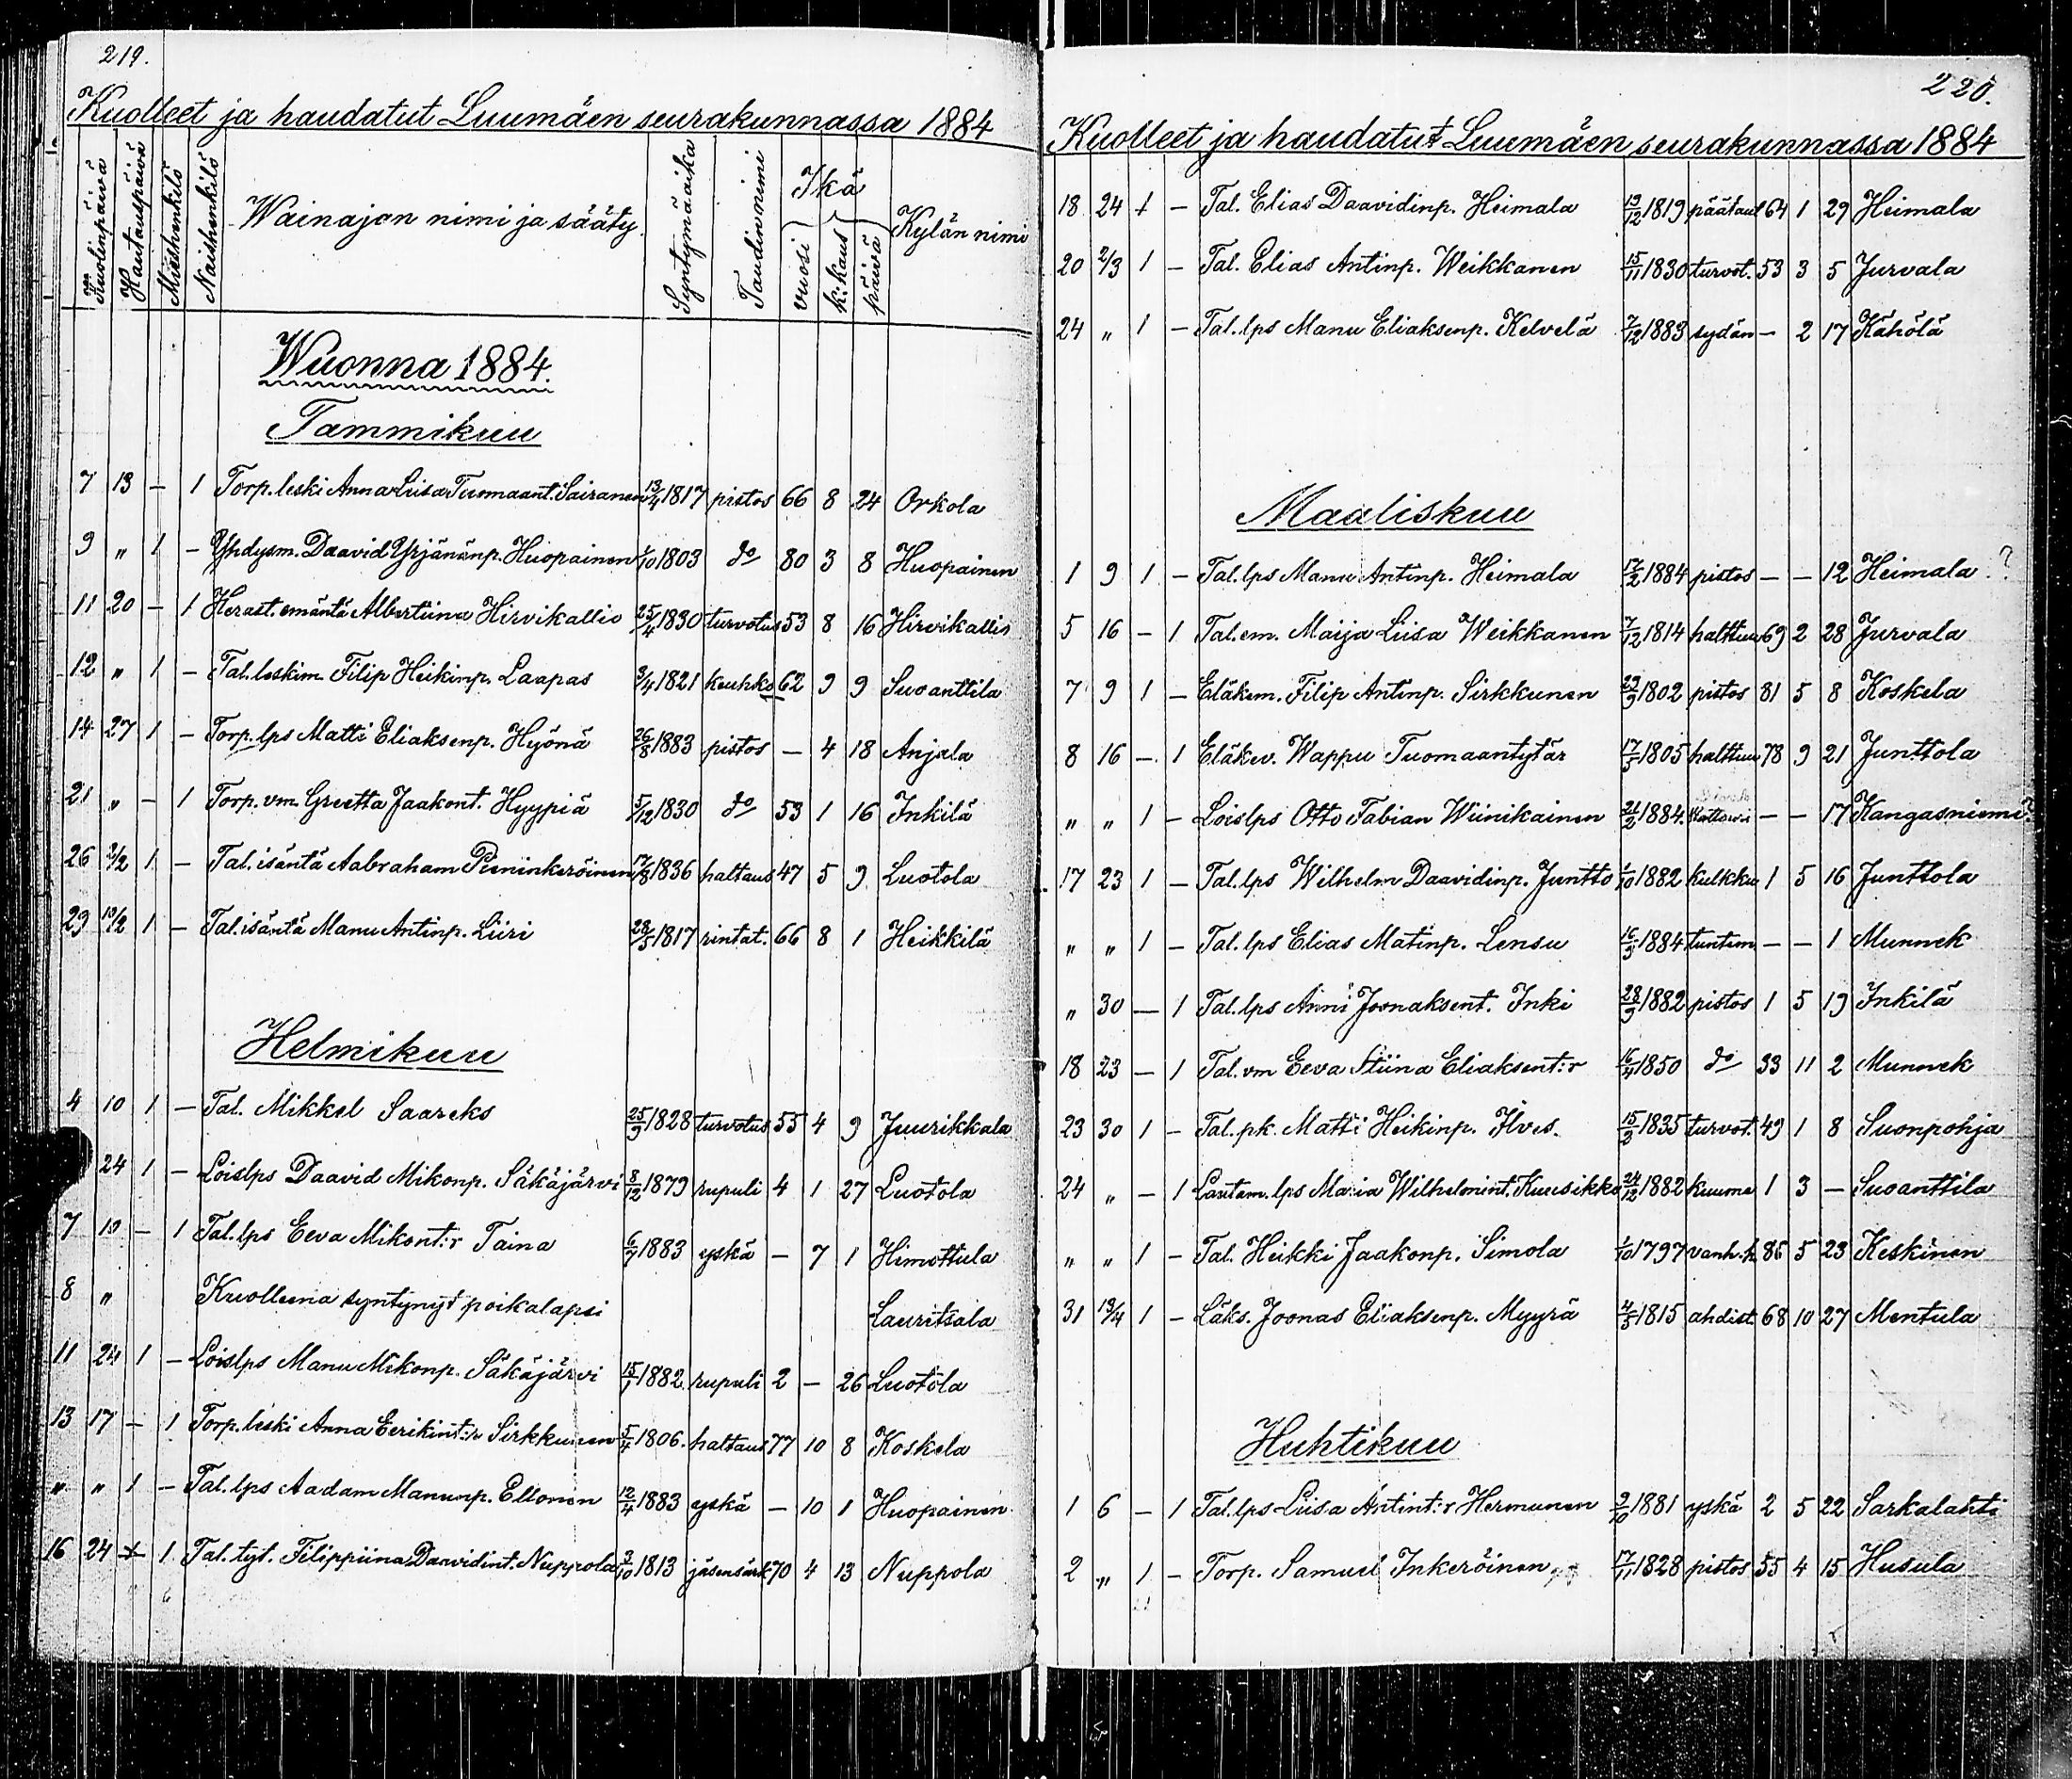 219.
Kuolleet ja haudatut Luumäen seurakunnassa 1884
Kuolinpäivä Hautauspäivä Miehenkilö Naishenkilö Wainajan nimi ja sääty. Syntymäaika Taudin nimi Ikä vuosi k:kaus päivä Kylän nimi
Wuonna 1884.
Tammikuu
7 13 — 1 Torp. leski Anna Liisa Tuomaant. Sairanen 13/4 1817 pistos 66 8 24 Orkola
9 „ 1 — Yhdysm. Daavid Yrjänänp. Huopainen 1/10 1803 do 80 3 8 Huopainen
11 20 — 1 Herast. emäntä Albertiina Hirvikallio 25/4 1830 turvotus 53 8 16 Hirvikallio
12 „ 1 — Tal. leskim. Filip Heikinp. Laapas 3/4 1821 keuhko 62 9 9 Suoanttila
14 27 1 — Torp. lps Matti Eliaksenp. Hyönä 26/8 1883 pistos — 4 18 Anjala
21 „ — 1 Torp. vm. Greetta Jaakont. Hyypiä 5/12 1830 do 53 1 16 Inkilä
26 3/2 1 — Tal. isäntä Aabraham Pieninkeröinen 17/8 1836 haltaus 47 5 9 Luotola
29 10/2 1 — Tal. isäntä Manu Antinp. Liiri 28/5 1817 rintat. 66 8 1 Heikkilä
Helmikuu
4 10 1 — Tal. Mikkel Saareks 25/9 1828 turvotus 55 4 9 Juurikkala
24 1 — Loislps Daavid Mikonp. Säkäjärvi 8/12 1879 rupuli 4 1 27 Luotola
7 10 — 1 Tal. lps Eeva Mikont:r Taina 6/7 1883 yskä — 7 1 Himottula
8 „ Kuolleena syntynyt poikalapsi Lauritsala
11 24 1 — Loislps Manu Mikonp. Säkäjärvi 15/1 1882 rupuli 2 — 26 Luotola
13 17 — 1 Torp. leski Anna Eerikint:r Sirkkunen 5/4 1806. haltaus 77 10 8 Koskela
„ „ 1 — Tal. lps Aadam Manunp. Ellonen 12/4 1883 yskä — 10 1 Huopainen
16 24 1 Tal. tyt. Filippiina Daavidint. Nuppola 3/10 1813 jäsensärk 70 4 13 Nuppola
220.
Kuolleet ja haudatut Luumäen seurakunnassa 1884
18 24 1 — Tal. Elias Daavidinp. Heimala 19/12 1819 päätaut 64 1 29 Heimala
20 2/3 1 — Tal. Elias Antinp. Weikkanen 15/11 1830 turvot. 53 3 5 Jurvala
24 „ 1 — Tal. lps Manu Eliaksenp. Kelvelä 7/12 1883 sydän — 2 17 Kähölä
Maaliskuu
1 9 1 — Tal. lps Manu Antinp. Heimala 17/2 1884 pistos — — 12 Heimala ?
5 16 — 1 Tal. em. Maija Liisa Weikkanen 7/12 1814 halttuu 69 2 28 Jurvala
7 9 1 — Eläkem. Filip Antinp. Sirkkunen 29/9 1802 pistos 81 5 8 Koskela
8 16 — 1 Eläkev. Wappu Tuomaantytär 17/5 1805 halttuu 78 9 21 Junttola
„ „ 1 — Loislps Otto Fabian Wiinikainen 21/2 1884. — — 17 Kangasniemi?
17 23 1 — Tal. lps Wilhelm Daavidinp. Juntto 1/10 1882 kulkku 1 5 16 Junttola
„ „ 1 — Tal. lps Elias Matinp. Lensu 16/3 1884 tuntem — — 1 Munnek
„ 30 — 1 Tal. lps Anni Joonaksent. Inki 28/9 1882 pistos 1 5 19 Inkilä
18 23 — 1 Tal. vm Eeva Stiina Eliaksent:r 16/4 1850 do 33 11 2 Munnek
23 30 1 — Tal. pk. Matti Heikinp. Ilves. 15/2 1835 turvot. 49 1 8 Suonpohja
24 „ — 1 Lautam. lps Maria Wilhelmint. Kuusikko 24/12 1882 kuume 1 3 — Suoanttila
„ „ 1 — Tal. Heikki Jaakonp. Simola 1/10 1797 vanh. h. 86 5 23 Keskinen
31 13/4 1 — Läks. Joonas Eliaksenp. Myyrä 4/5 1815 ahdist. 68 10 27 Mentula
Huhtikuu
1 6 — 1 Tal. lps Liisa Antint:r Hermunen 9/10 1881 yskä 2 5 22 Sarkalahti
2 „ 1 — Torp. Samuel Inkeröinen 17/11 1828 pistos 55 4 15 Husula